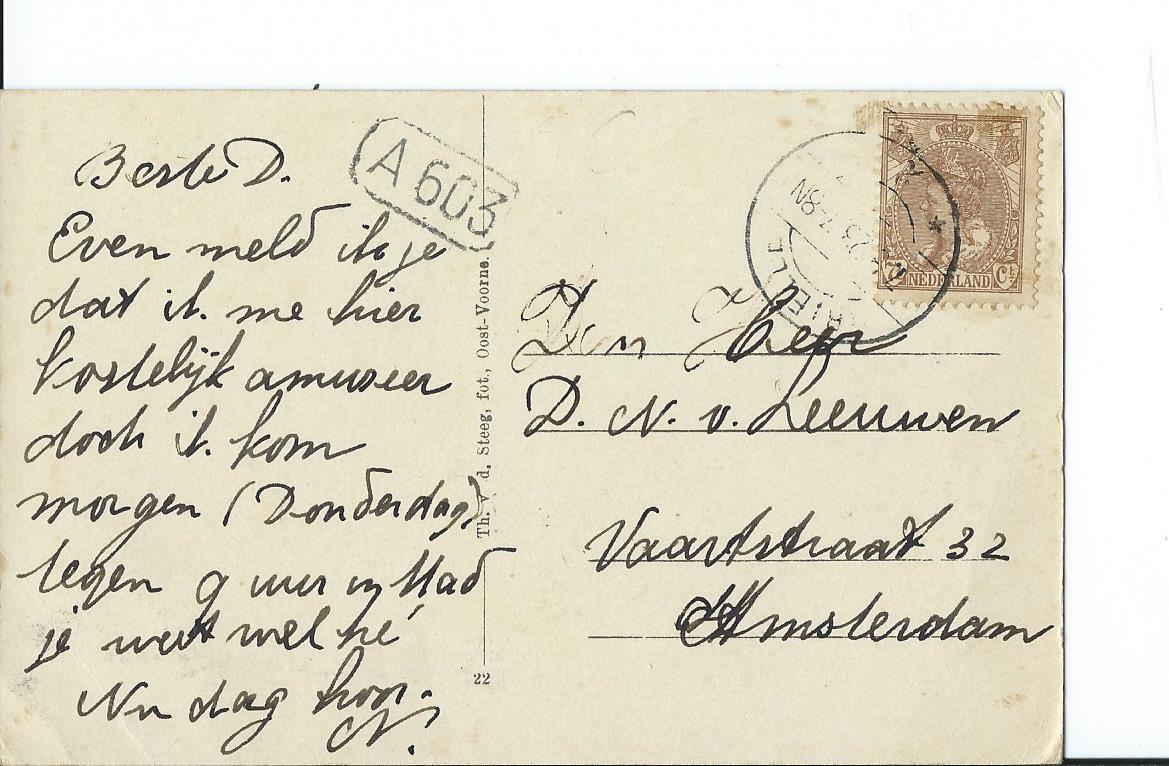 Beste D.
A 603
Even meld ik je
dat ik me hier
kostelijk amuseer
doch ik kom
morgen (Donderdag)
tegen 9 uur in stad
je weet wel hé
Nu dag hoor.
N.
Th. v. d. Steeg, fot., Oost-Voorne.
22
BRIELLE
7-8N
7½ NEDERLAND Ct
Den Heer
D. N. v. Leeuwen
Vaartstraat 32
Amsterdam